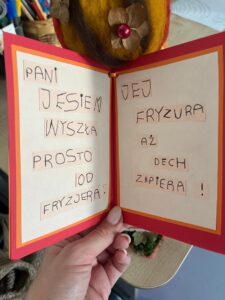 PANI
JESIEŃ
WYSZŁA
PROSTO
OD
FRYZJERA.
JEJ
FRYZURA
AŻ
DECH
ZAPIERA !